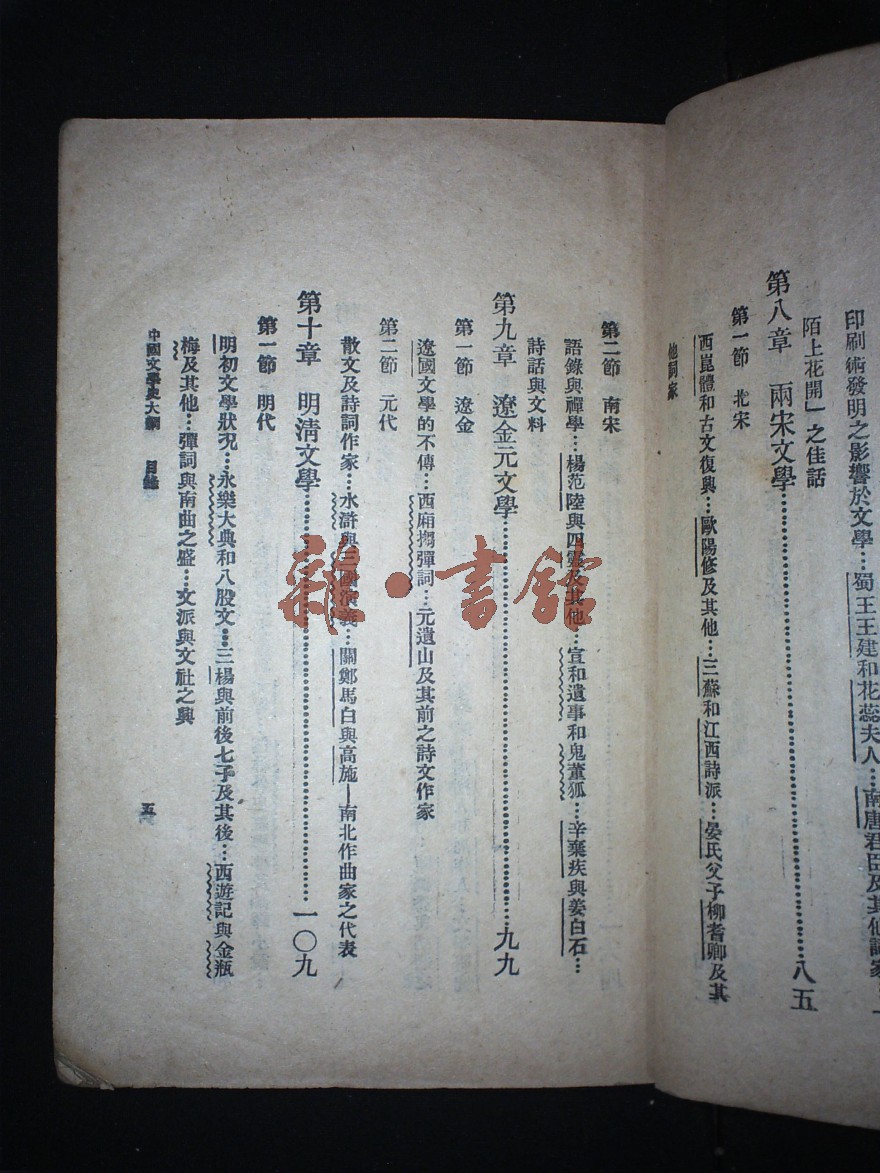 印刷術發明之影響於文學…蜀王王建和花蕊夫人…南唐君臣及其他詞家
陌上花開」之佳話
第八章　兩宋文學……八五
第一節　北宋
西崑體和古文復興…歐陽修及其他…三蘇和江西詩派…晏氏父子柳耆卿及其
他詞家
第二節　南宋
語錄與禪學…楊范陸與四靈及其他…宣和遺事和鬼董狐…辛棄疾與姜白石…
詩話與文料
第九章　遼金元文學……九九
第一節　遼金
遼國文學的不傳…西廂搊彈詞…元遺山及其前之詩文作家
第二節　元代
散文及詩詞作家…水滸與三國演義…關鄭馬白與高施—南北作曲家之代表
第十章　明清文學……一〇九
第一節　明代
明初文學狀況…永樂大典和八股文…三楊與前後七子及其後…西遊記與金瓶
梅及其他…彈詞與南曲之盛…文派與文社之興
中國文學史大綱　目錄
五
書館